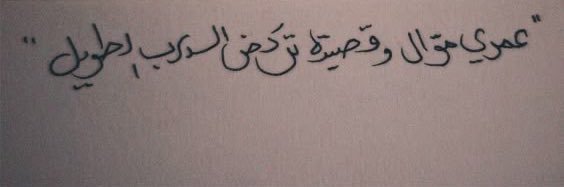 "عمري موّال وقصيدة تركض الدرب الطويل"